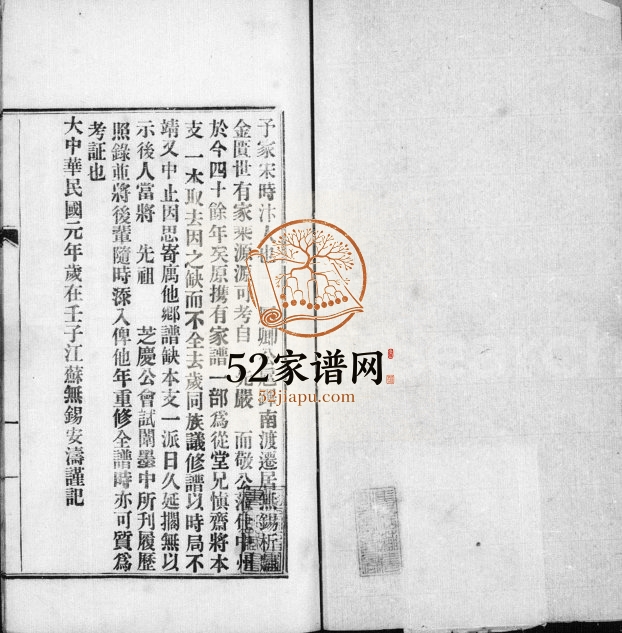 予家宋時汴人也 卿公 南渡遷居無錫析
金匱世有家乘源源可考自 先嚴 而敬公 仕中州
於今四十餘年矣原擕有家譜一部爲從堂兄愼齋將本
支一本取去因之缺而不全去歲同族議修譜以時局不
靖又中止因思寄寓他鄉譜缺本支一派日久延擱無以
示後人當將 先祖 芝慶公會試闈墨中所刊履歷
照錄並將後輩隨時添入俾他年重修全譜時亦可質爲
考証也
大中華民國元年歲在壬子江蘇無錫安濤謹記
52家谱网
52jiapu.com